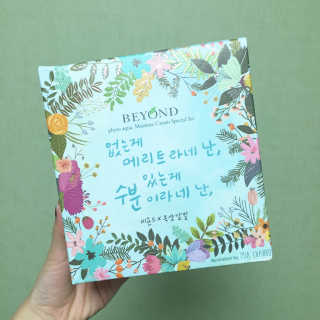 BEYOND
phyto aqua Moisture Cream Special Set
없는게
메리트라네 난,
있는게
수분이라네 난,
비욘드 x 옥상달빛
illustration by